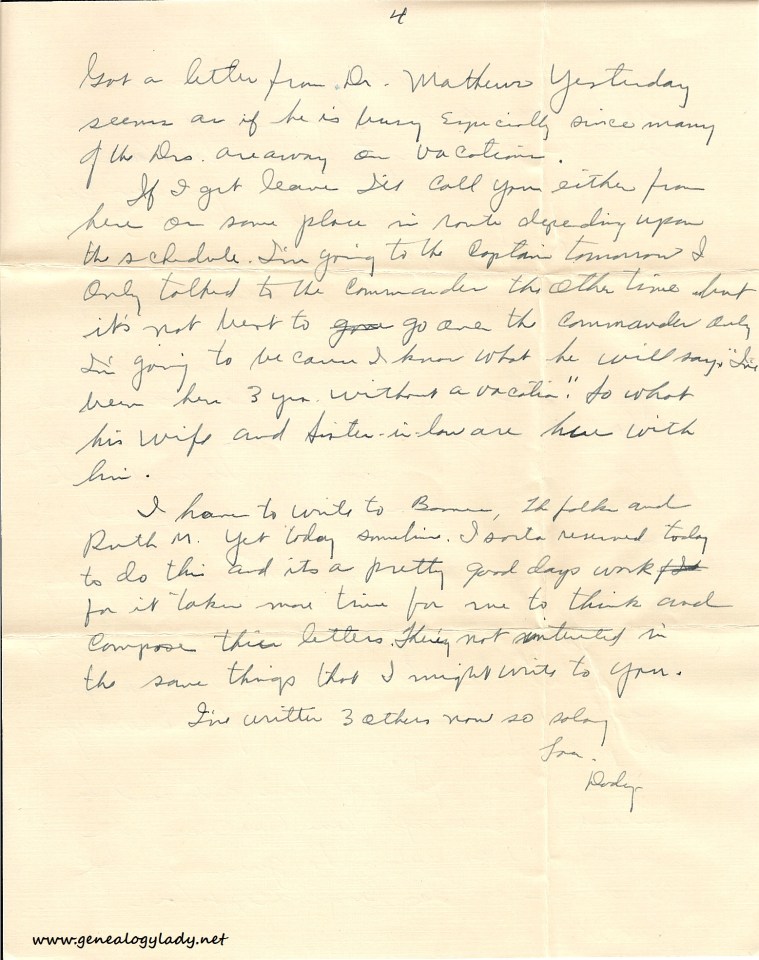 4
Got a letter from Dr. Mathews Yesterday
seems as if he is busy Especially since many
of the Drs. are away on vacations.
If I get leave I'll call you either from
here or some place in route depending upon
the schedule. I'm going to the Captain tomorrow I
only talked to the Commander the other time but
it's not best to gove go over the Commander only
I'm going to because I know what he will say, "I've
been here 3 yrs. without a vacation". So what
his wife and sister-in-law are here with
him.
I have to write to folks and
Ruth M. yet today sometime. I sorta reserved today
to do this and its a pretty good days work
for it takes more time for me to think and
compose their letters. They're not interested in
the same things that I might write to you.
I've written 3 others now so solong
Love.
Dody
www.genealogylady.net